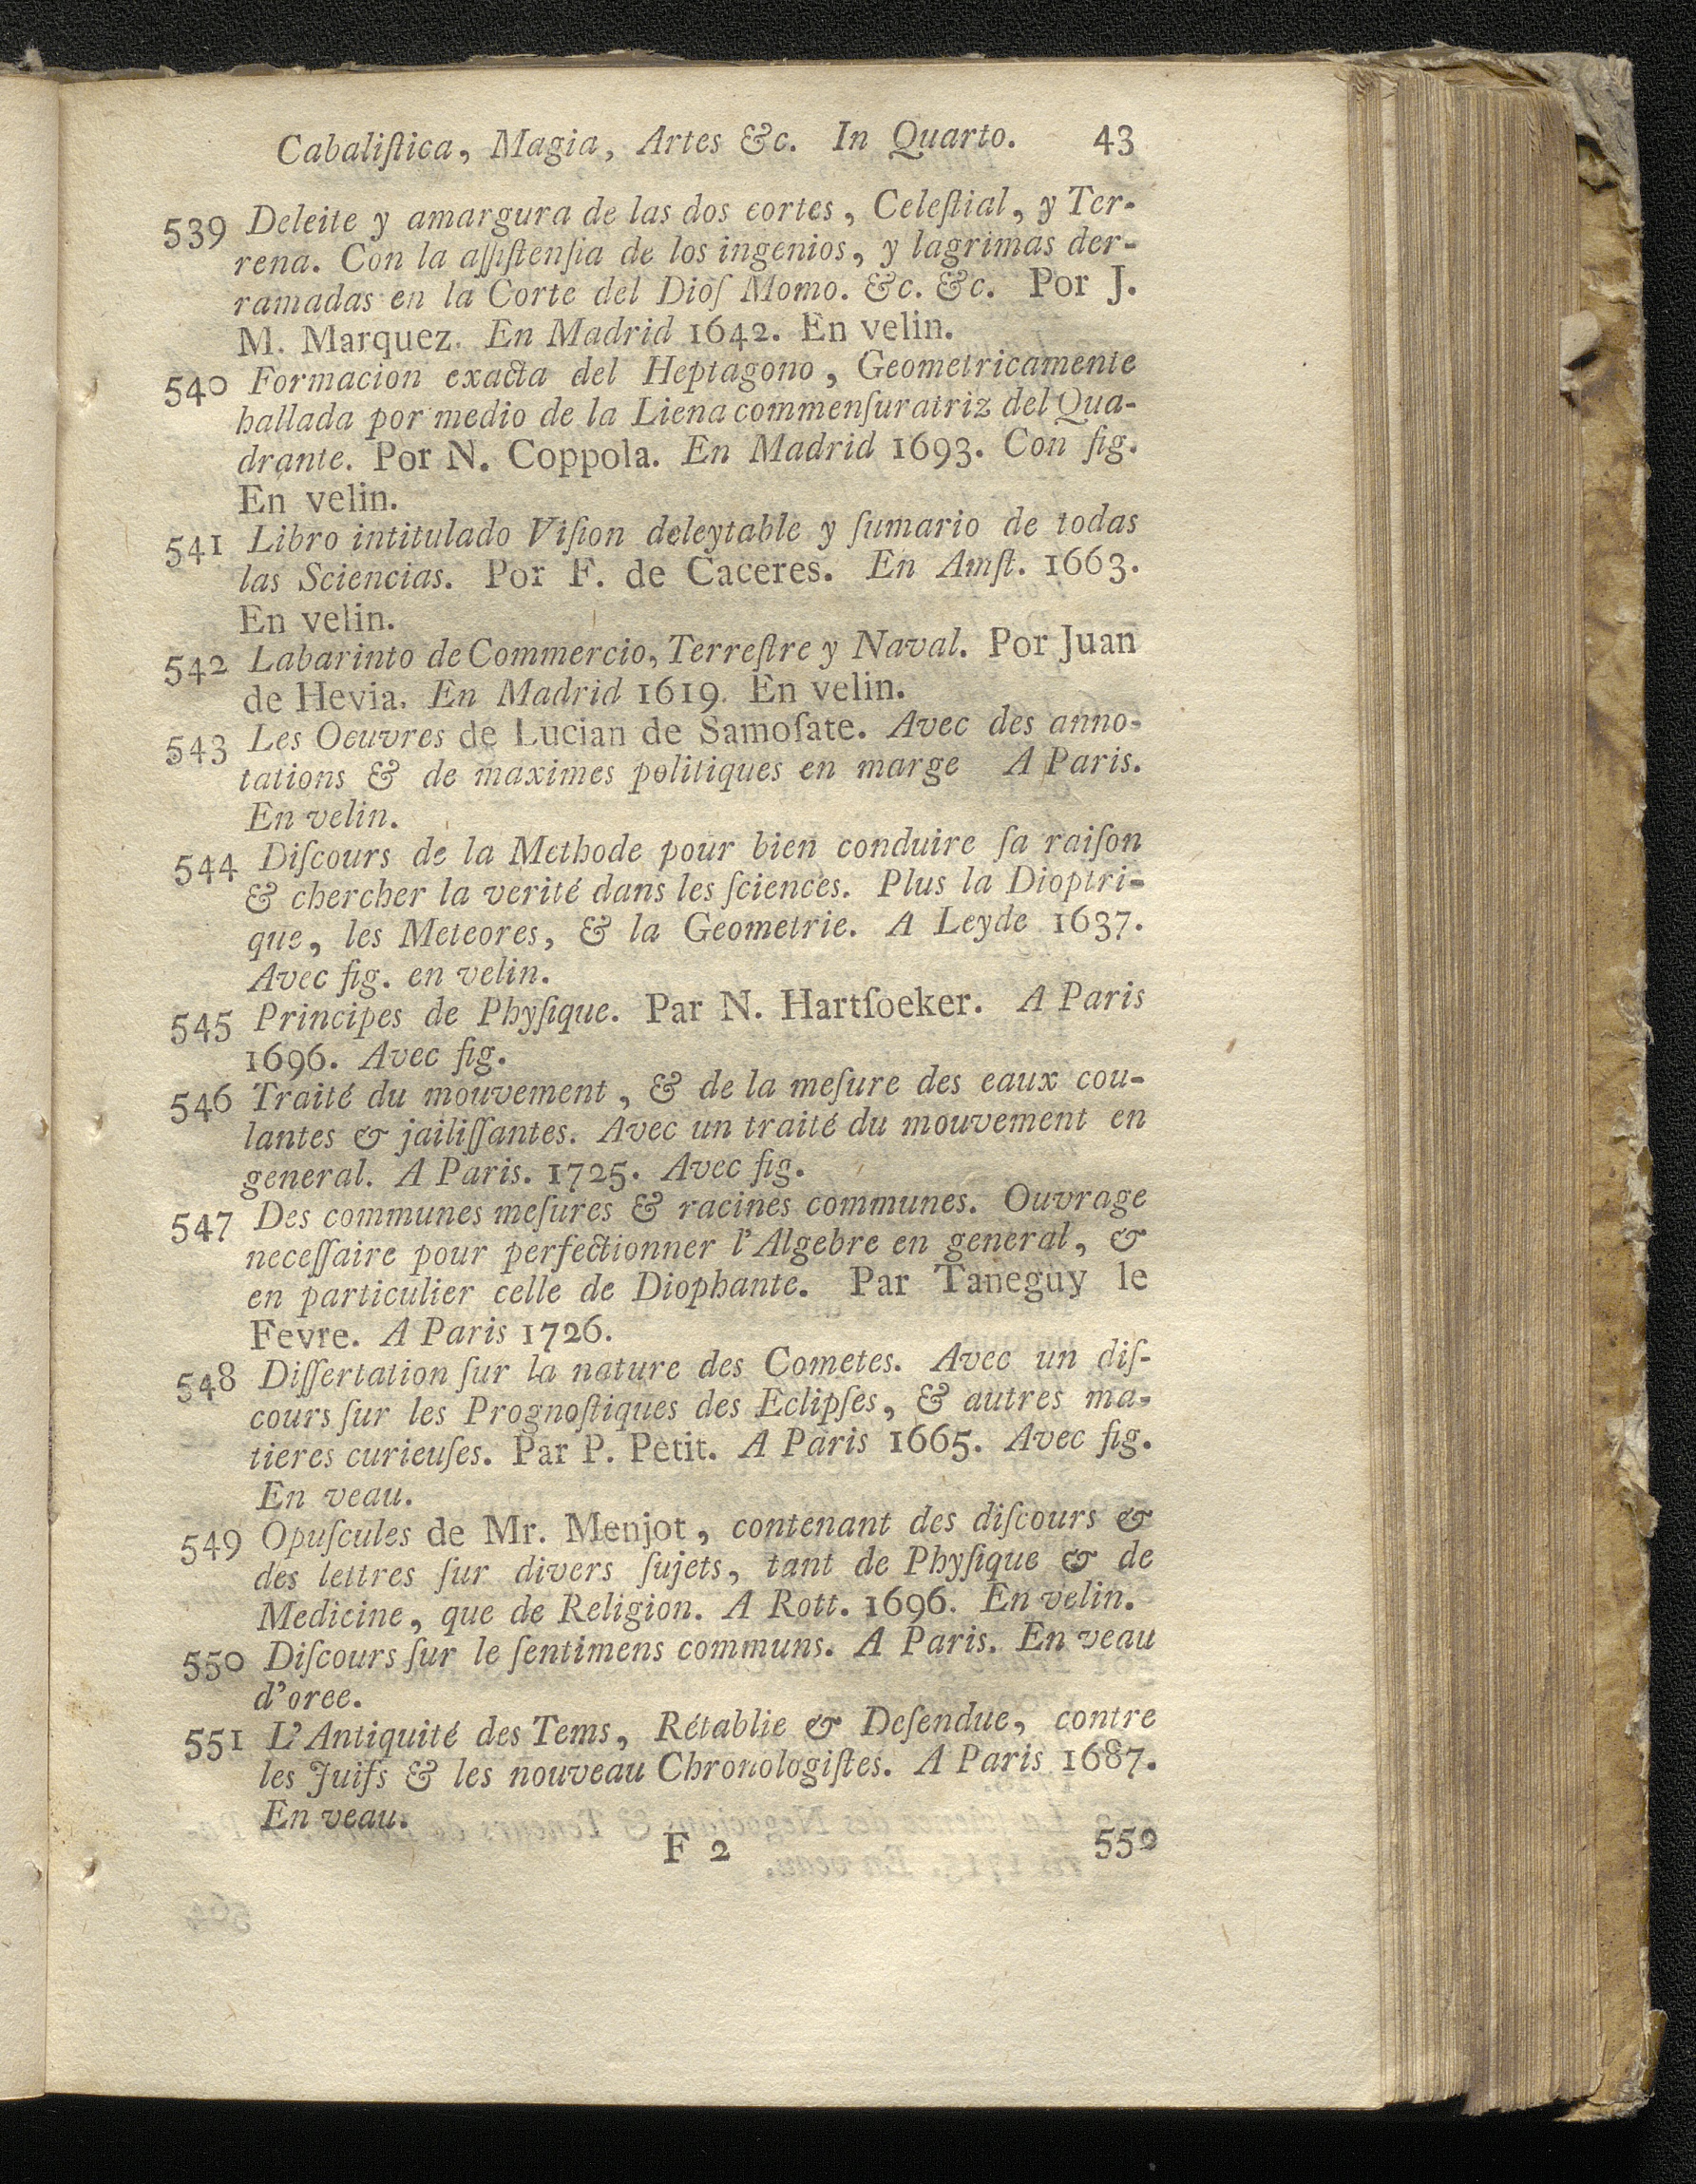 Cabaliſtica, Magia, Artes &c. In Quarto. 43
539 Deleite y amargura de las dos cortes, Celeſtial, y Ter-
rena. Con la aſſiſtenſia de los ingenios, y lagrimas der-
ramadas en la Corte del Dioſ Momo. &c. &c. Por J.
M. Marquez. En Madrid 1642. En velin.
540 Formacion exacta del Heptagono, Geometricamente
hallada por medio de la Liena commenſuratriz del Qua-
drante. Por N. Coppola. En Madrid 1693. Con fig.
En velin.
541 Libro intitulado Viſion deleytable y ſumario de todas
las Sciencias. Por F. de Caceres. En Amſt. 1663.
En velin.
542 Labarinto de Commercio, Terreſtre y Naval. Por Juan
de Hevia. En Madrid 1619. En velin.
543 Les Oeuvres de Lucian de Samoſate. Avec des anno-
tations & de maximes politiques en marge A Paris.
En velin.
544 Diſcours de la Methode pour bien conduire ſa raiſon
& chercher la verité dans les ſciences. Plus la Dioptri-
que, les Meteores, & la Geometrie. A Leyde 1637.
Avec fig. en velin.
545 Principes de Phyſique. Par N. Hartſoeker. A Paris
1696. Avec fig.
546 Traité du mouvement, & de la meſure des eaux cou-
lantes & jailiſſantes. Avec un traité du mouvement en
general. A Paris. 1725. Avec fig.
547 Des communes meſures & racines communes. Ouvrage
neceſſaire pour perfectionner l'Algebre en general, &
en particulier celle de Diophante. Par Taneguy le
Fevre. A Paris 1726.
548 Diſſertation ſur la nature des Cometes. Avec un diſ-
cours ſur les Prognoſtiques des Eclipſes, & autres ma-
tieres curieuſes. Par P. Petit. A Paris 1665. Avec fig.
En veau.
549 Opuſcules de Mr. Menjot, contenant des diſcours &
des lettres ſur divers ſujets, tant de Phyſique & de
Medicine, que de Religion. A Rott. 1696. En velin.
550 Diſcours ſur le ſentimens communs. A Paris. En veau
d'oree.
551 L'Antiquité des Tems, Rétablie & Deſendue, contre
les Juifs & les nouveau Chronologiſtes. A Paris 1687.
En veau.
F 2 552